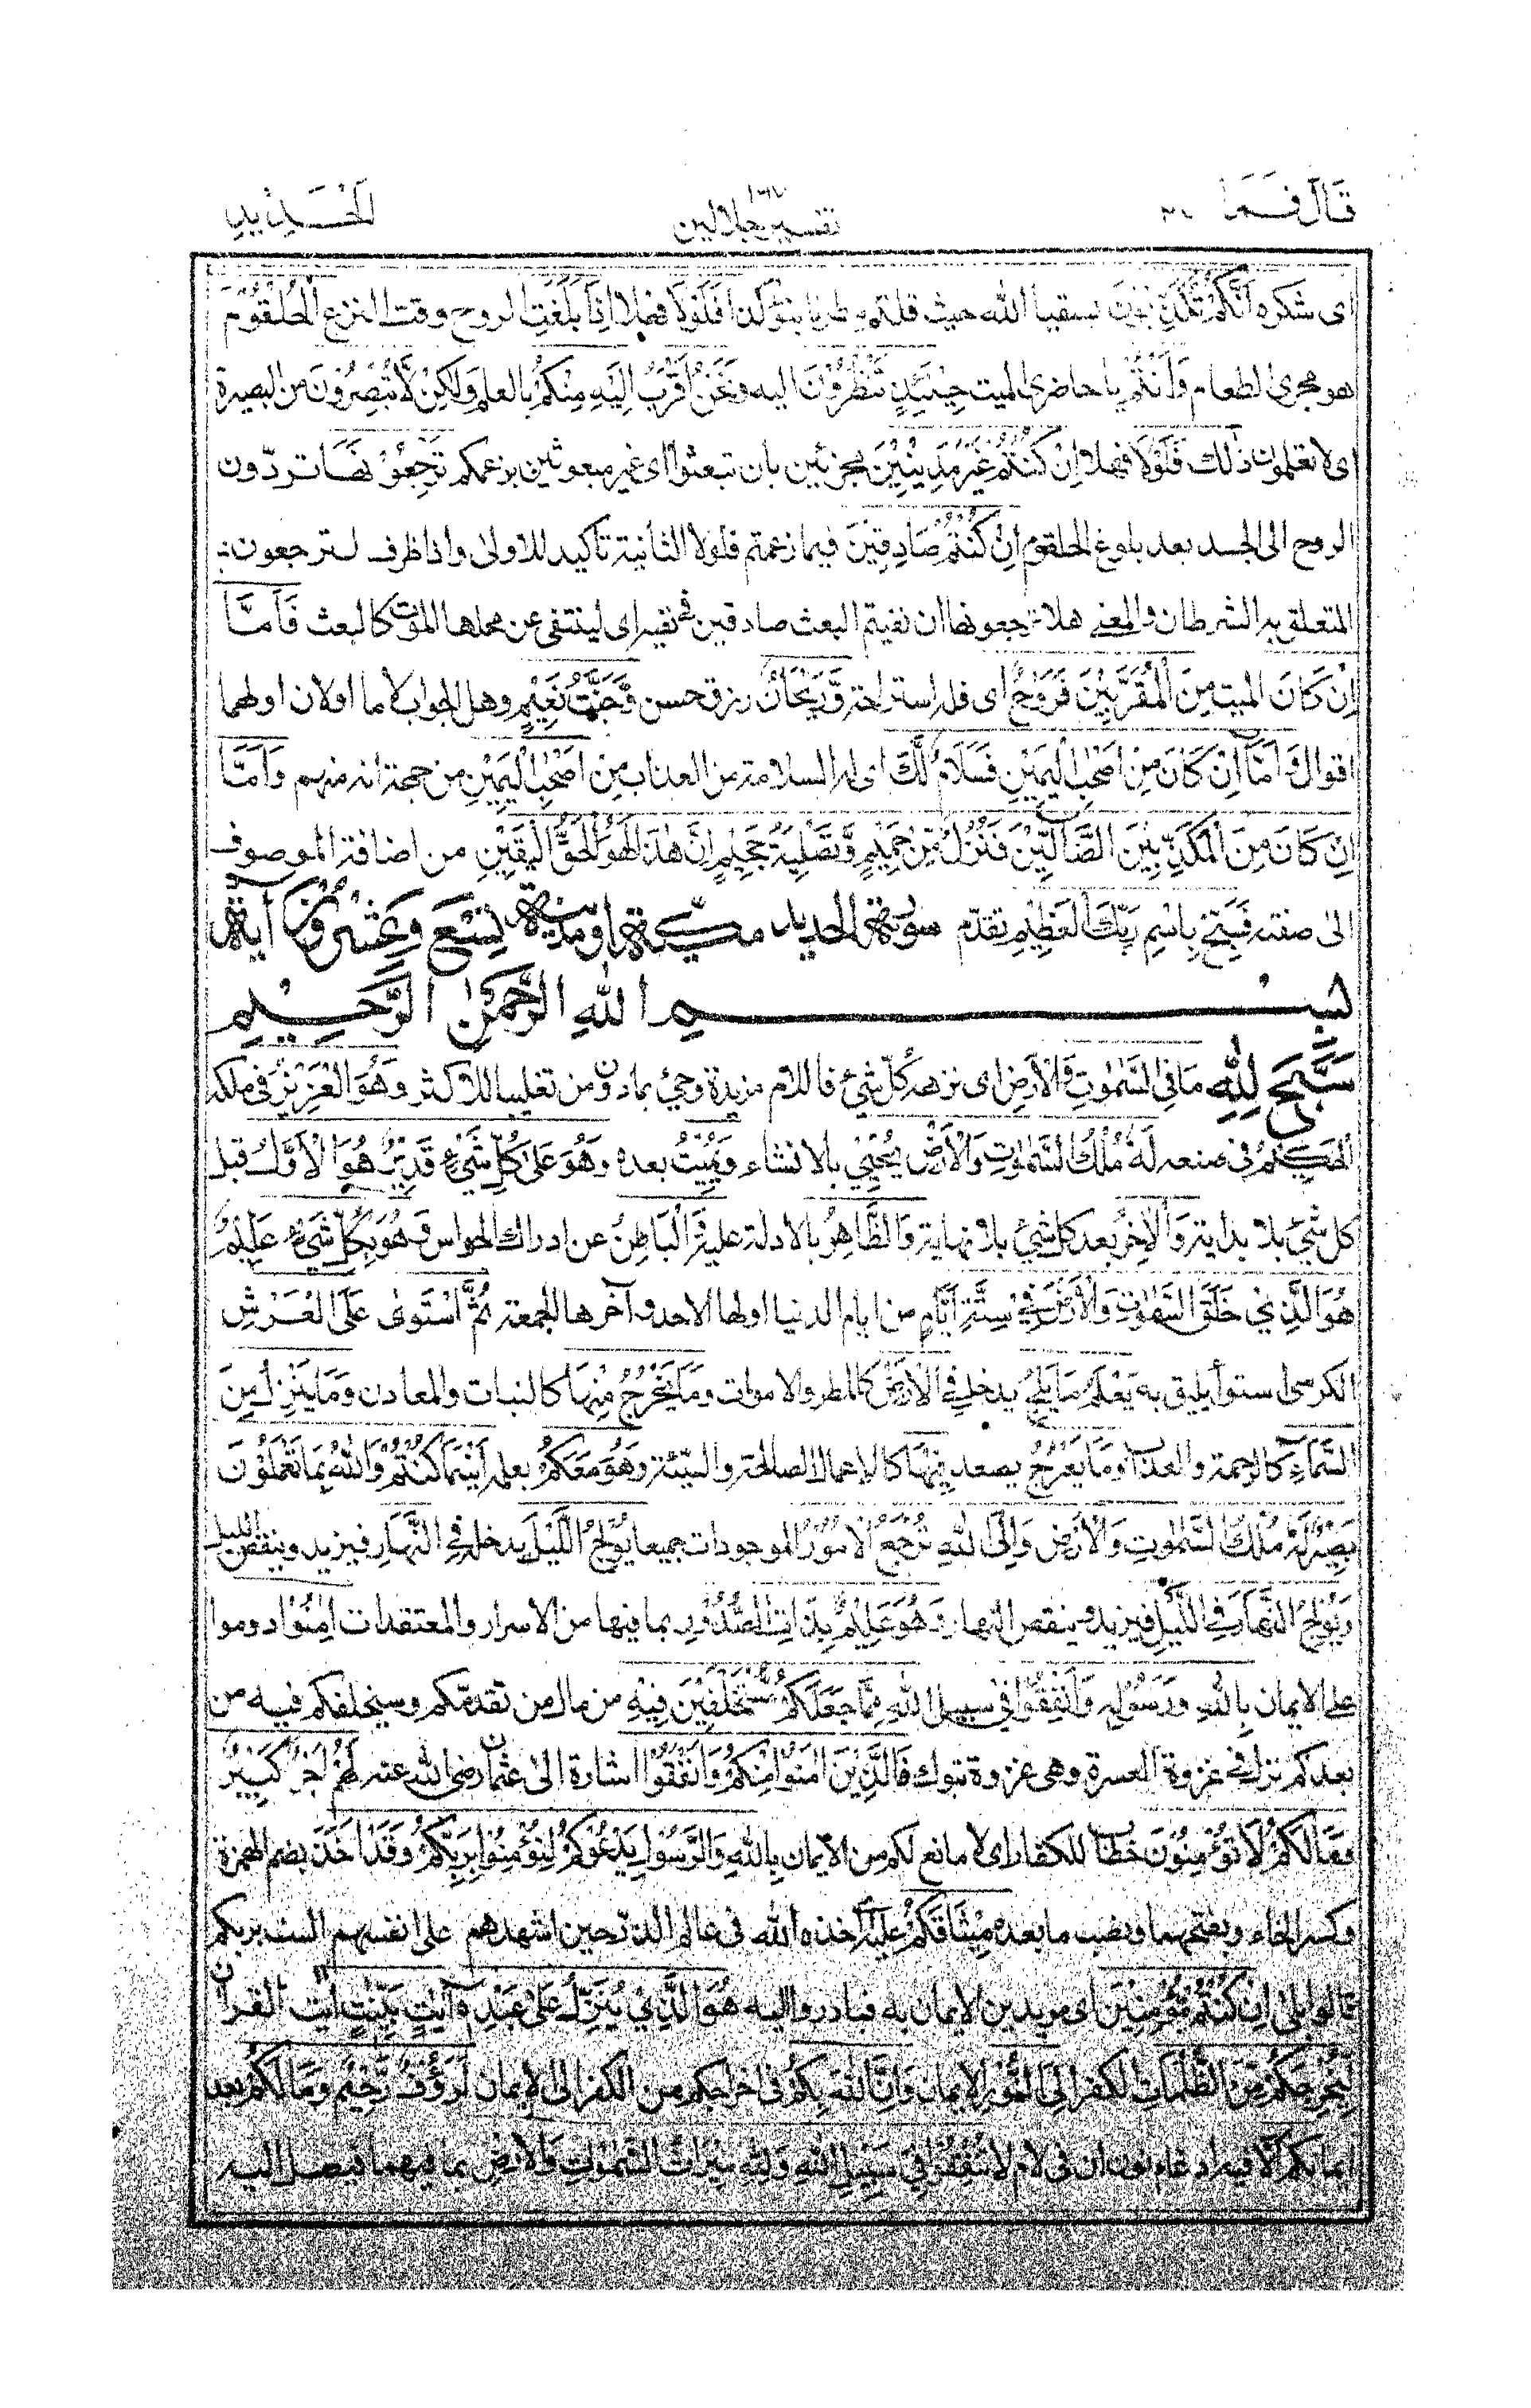 قَالَ فَمَا ٢٧
تفسير جلالين
الْحَدِيدِ
اى شكره اَنَّكُمْ تُكَذِّبُوْنَ بسقيا الله حيث قلتم مطرنا بنوء كذا فَلَوْلَا فهلا اِذَا بَلَغَتِ الروح وقت النزع الْحُلْقُوْمَ
هو مجرى الطعام وَاَنْتُمْ يا حاضرى الميت حِيْنَئِذٍ تَنْظُرُوْنَ اليه وَنَحْنُ اَقْرَبُ اِلَيْهِ مِنْكُمْ بالعلم وَلٰكِنْ لَّا تُبْصِرُوْنَ من البصيرة
اى لا تعلمون ذلك فَلَوْلَا فهلا اِنْ كُنْتُمْ غَيْرَ مَدِيْنِيْنَ مجزئين بان تبعثوا اى غير مبعوثين بزعمكم تَرْجِعُوْنَهَا تردّون
الروح الى الجسد بعد بلوغ الحلقوم اِنْ كُنْتُمْ صَادِقِيْنَ فيما زعمتم فلولا الثانية تاكيد للاولى واذا ظرف لترجعون
المتعلق به الشرطان والمعنى هلا ترجعونها ان نفيتم البعث صادقين فى نفيه اى لينتفى عن محلها الموت كالبعث فَاَمَّا
اِنْ كَانَ الميت مِنَ الْمُقَرَّبِيْنَ فَرَوْحٌ اى فله استراحة وَّرَيْحَانٌ رزق حسن وَّجَنَّتُ نَعِيْمٍ وهل الجواب لاما اولان او لهما
اقوال وَاَمَّا اِنْ كَانَ مِنْ اَصْحٰبِ الْيَمِيْنِ فَسَلَامٌ لَّكَ اى له السلامة من العذاب مِنْ اَصْحٰبِ الْيَمِيْنِ من جهة انه منهم وَاَمَّا
اِنْ كَانَ مِنَ الْمُكَذِّبِيْنَ الضَّالِّيْنَ فَنُزُلٌ مِّنْ حَمِيْمٍ وَّتَصْلِيَةُ جَحِيْمٍ اِنَّ هٰذَا لَهُوَ الْحَقُّ الْيَقِيْنِ من اضافة الموصوف
الى صفته فَسَبِّحْ بِاسْمِ رَبِّكَ الْعَظِيْمِ تقدّم سورة الحديد مكيّة او مدنية تِسْعَ وَعِشْرُوْنَ آية
بِسْمِ اللّٰهِ الرَّحْمٰنِ الرَّحِيْمِ
سَبَّحَ لِلّٰهِ مَا فِى السَّمٰوٰتِ وَالْاَرْضِ اى نزهه كُلّ شىء فاللام مزيدة وجىء بما دون من تغليبا للاكثر وَهُوَ الْعَزِيْزُ فى ملكه
الْحَكِيْمُ فى صنعه لَهٗ مُلْكُ السَّمٰوٰتِ وَالْاَرْضِ يُحْيِيْ بالانشاء وَيُمِيْتُ بعده وَهُوَ عَلٰى كُلِّ شَيْءٍ قَدِيْرٌ هُوَ الْاَوَّلُ قبل
كل شىء بلا بداية وَالْاٰخِرُ بعد كل شىء بلا نهاية وَالظَّاهِرُ بالادلة عليه وَالْبَاطِنُ عن ادراك الحواس وَهُوَ بِكُلِّ شَيْءٍ عَلِيْمٌ
هُوَ الَّذِيْ خَلَقَ السَّمٰوٰتِ وَالْاَرْضَ فِيْ سِتَّةِ اَيَّامٍ من ايام الدنيا اولها الاحد وآخرها الجمعة ثُمَّ اسْتَوٰى عَلَى الْعَرْشِ
الكرسى استواً يليق به يَعْلَمُ مَا يَلِجُ يدخل فِى الْاَرْضِ كالمطر والاموات وَمَا يَخْرُجُ مِنْهَا كالنبات والمعادن وَمَا يَنْزِلُ مِنَ
السَّمَاءِ كالرحمة والعذاب وَمَا يَعْرُجُ يصعد فِيْهَا كالاعمال الصالحة والسّيئة وَهُوَ مَعَكُمْ بعلمه اَيْنَمَا كُنْتُمْ وَاللّٰهُ بِمَا تَعْمَلُوْنَ
بَصِيْرٌ لَهٗ مُلْكُ السَّمٰوٰتِ وَالْاَرْضِ وَاِلَى اللّٰهِ تُرْجَعُ الْاُمُوْرُ الموجودات جميعا يُوْلِجُ الَّيْلَ يدخله فِى النَّهَارِ فيزيد وينقص الليل
وَيُوْلِجُ النَّهَارَ فِى الَّيْلِ فيزيد وينقص النهار وَهُوَ عَلِيْمٌ بِذَاتِ الصُّدُوْرِ بما فيها من الاسرار والمعتقدات اٰمِنُوْا دوموا
على الايمان بِاللّٰهِ وَرَسُوْلِهٖ وَاَنْفِقُوْا فى سبيل الله مِمَّا جَعَلَكُمْ مُسْتَخْلَفِيْنَ فِيْهِ من مال من تقدمكم وسيخلفكم فيه من
بعدكم نزل فى غزوة العسرة وهى غزوة تبوك فَالَّذِيْنَ اٰمَنُوْا مِنْكُمْ وَاَنْفَقُوْا اشارة الى عثمان رضى الله عنه لَهُمْ اَجْرٌ كَبِيْرٌ
وَمَا لَكُمْ لَا تُؤْمِنُوْنَ خطاب للكفار اى لا مانع لكم من الايمان بِاللّٰهِ وَالرَّسُوْلُ يَدْعُوْكُمْ لِتُؤْمِنُوْا بِرَبِّكُمْ وَقَدْ اَخَذَ بضم الهمزة
وكسر الخاء وبفتحهما ونصب ما بعده مِيْثَاقَكُمْ عليه اى اخذه الله فى عالم الذرّ حين اشهدهم على انفسهم الست بربكم
قالوا بلى اِنْ كُنْتُمْ مُّؤْمِنِيْنَ اى مريدين الايمان به فبادروا اليه هُوَ الَّذِيْ يُنَزِّلُ عَلٰى عَبْدِهٖ آيٰتٍ بَيِّنٰتٍ اٰيٰت القرآن
لِيُخْرِجَكُمْ مِنَ الظُّلُمَاتِ الكفر اِلَى النُّوْرِ الايمان وَاِنَّ اللّٰهَ بِكُمْ فى اخراجكم من الكفر الى الايمان لَرَؤُفٌ رَّحِيْمٌ وَمَا لَكُمْ بعد
ايمانكم اَلَّا فيه ادغام نون ان فى لام لا تُنْفِقُوْا فِيْ سَبِيْلِ اللّٰهِ وَلِلّٰهِ مِيْرَاثُ السَّمٰوٰتِ وَالْاَرْضِ بما فيهما فيصل اليه